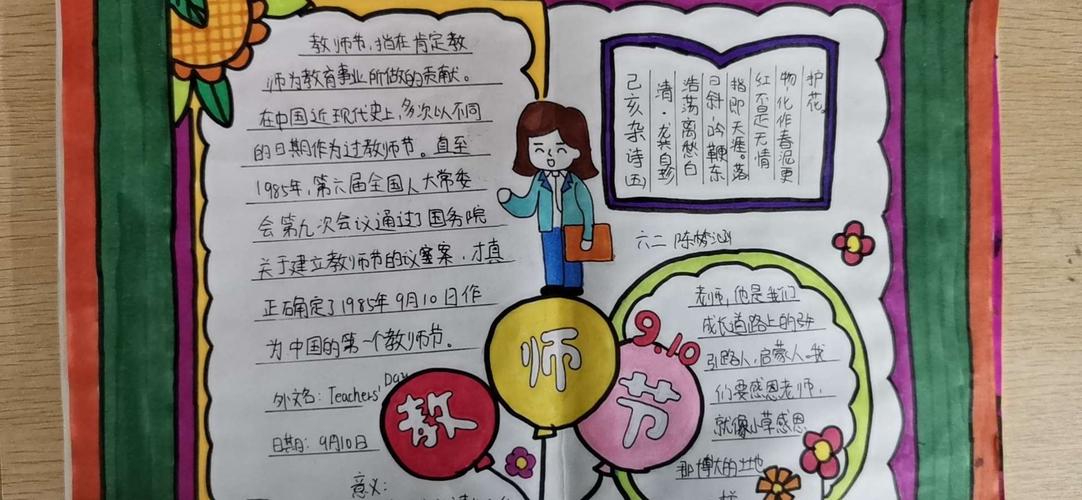 教师节,指在肯定教
师为教育事业所做的贡献。
在中国近现代史上,多次以不同
的日期作为过教师节。直至
1985年,第六届全国人大常委
会第九次会议通过了国务院
关于建立教师节的议案,才真
正确定了1985年9月10日作
为中国的第一个教师节。
外文名:Teachers' Day
日期:9月10日
意义:
己亥杂诗五
清·龚自珍
浩荡离愁白
日斜,吟鞭东
指即天涯。落
红不是无情
物,化作春泥更
护花。
六二 陈梦涵
9.10
教师节
老师,他是我们
成长道路上的
引路人,启蒙人。我
们要感恩老师,
就像小草感恩
那博大的土地